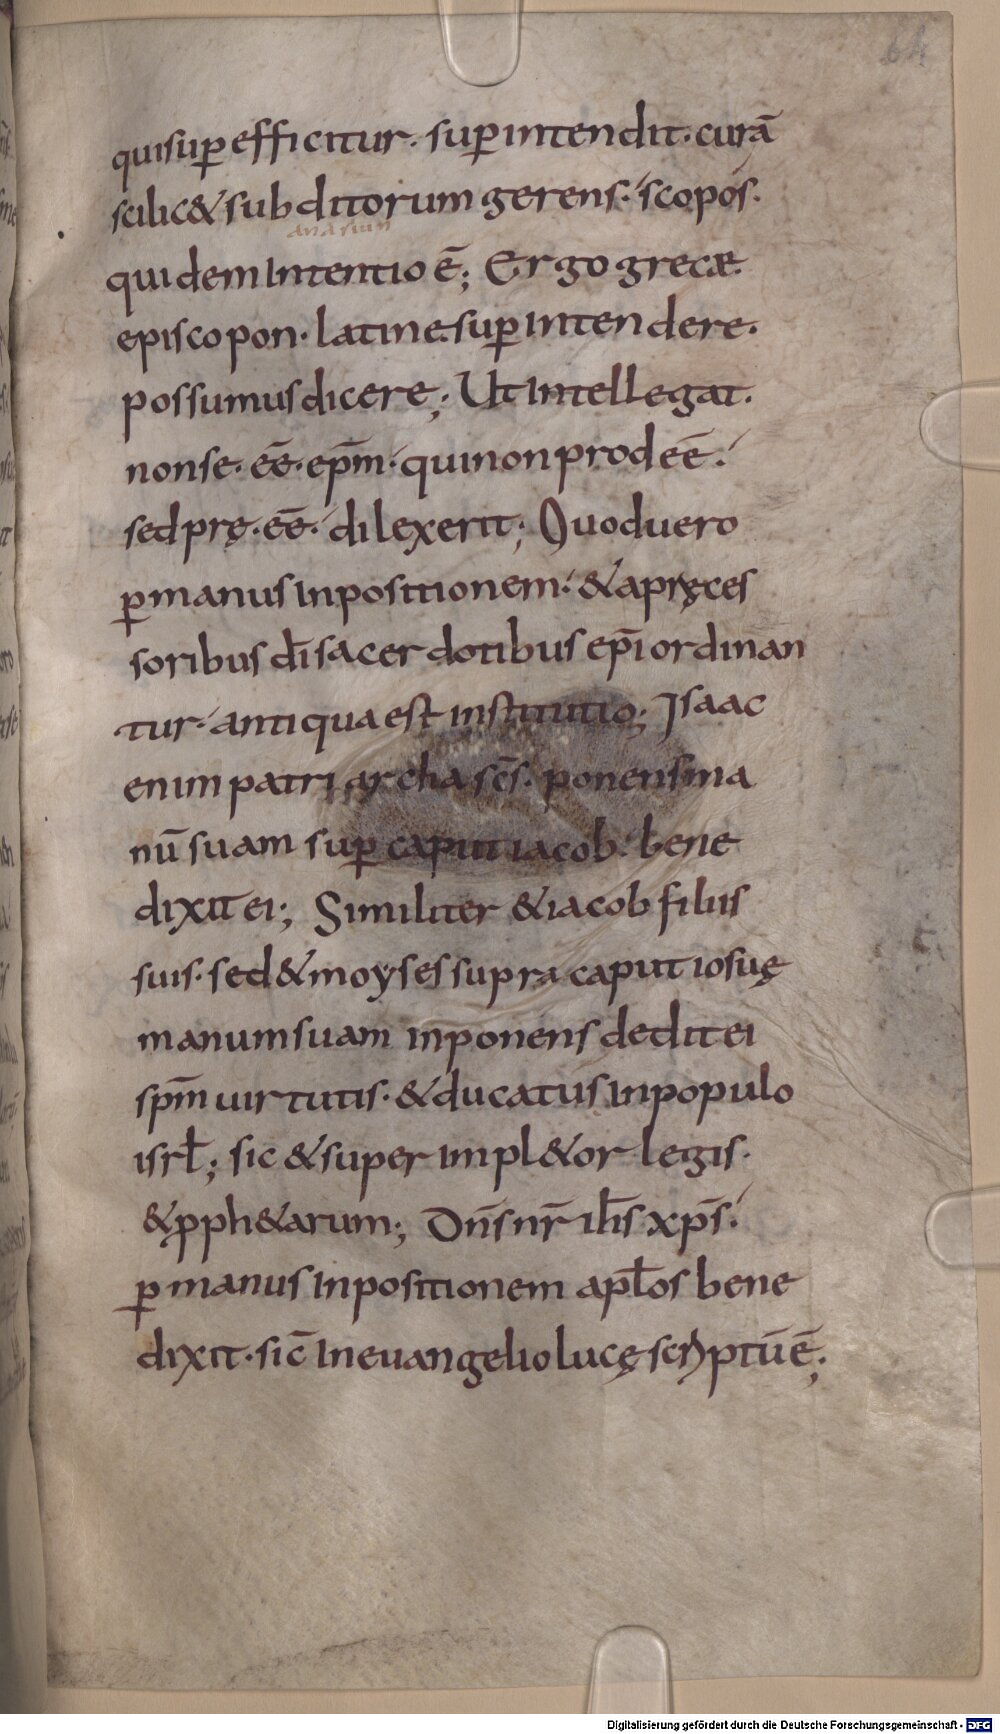 64
quisuꝑefficitur. suꝑintendit. curā
scilic& subditorum gerens. scopos.
anasiun
quidem intentio ē; Ergo grecæ.
episcopon. latine. suꝑintendere.
possumus dicere; Ut intellegat.
non se. eē. ep̄m. qui non prodeē.
sed prę. eē. dilexerit; Quod uero
ꝑ manus inpositionem. & a pręces
soribus dī sacerdotibus ep̄i ordinan
tur. antiqua est institutio; Isaac
enim patriarcha sc̄s. ponens ma
nū suam suꝑ caput iacob. bene
dixit ei; Similiter & iacob filiis
suis. sed & moyses supra caput iosuę
manum suam inponens dedit ei
sp̄m uirtutis. & ducatus in populo
isrł; sic & super impl&or legis.
& ꝓph&arum; Dn̄s nr̄ ih̄s xp̄s.
ꝑ manus inpositionem apłos bene
dixit. sic̄ in euangelio lucę scriptū ē;
Digitalisierung gefördert durch die Deutsche Forschungsgemeinschaft - DFG